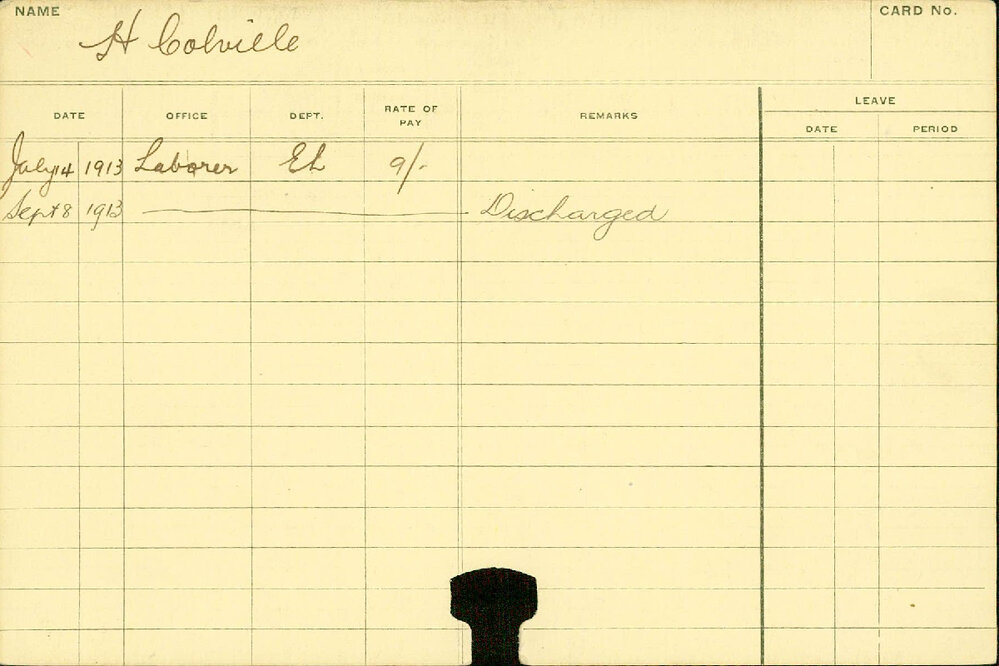 NAME CARD No.
H Colville
LEAVE
DATE OFFICE DEPT. RATE OF PAY REMARKS DATE PERIOD
July 14 1913 Laborer EL 9/-
Sept 8 1913 Discharged